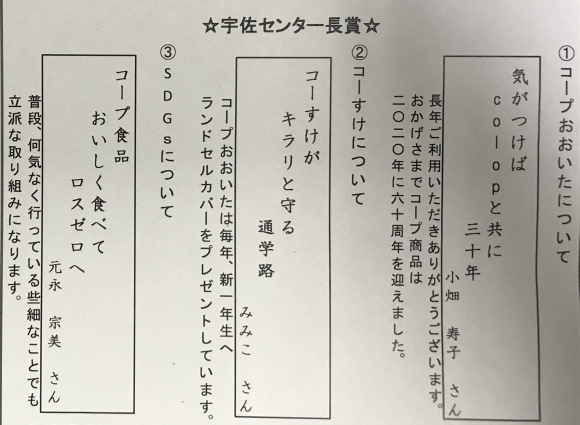 ☆宇佐センター長賞☆
①コープおおいたについて
気がつけば
coopと共に
三十年
小畑 寿子 さん
長年ご利用いただきありがとうございます。
おかげさまでコープ商品は
二〇二〇年に六十周年を迎えました。
②コーすけについて
コーすけが
キラリと守る
通学路
みみこ さん
コープおおいたは毎年、新一年生へ
ランドセルカバーをプレゼントしています。
③SDGsについて
コープ食品
おいしく食べて
ロスゼロへ
元永 宗美 さん
普段、何気なく行っている些細なことでも
立派な取り組みになります。